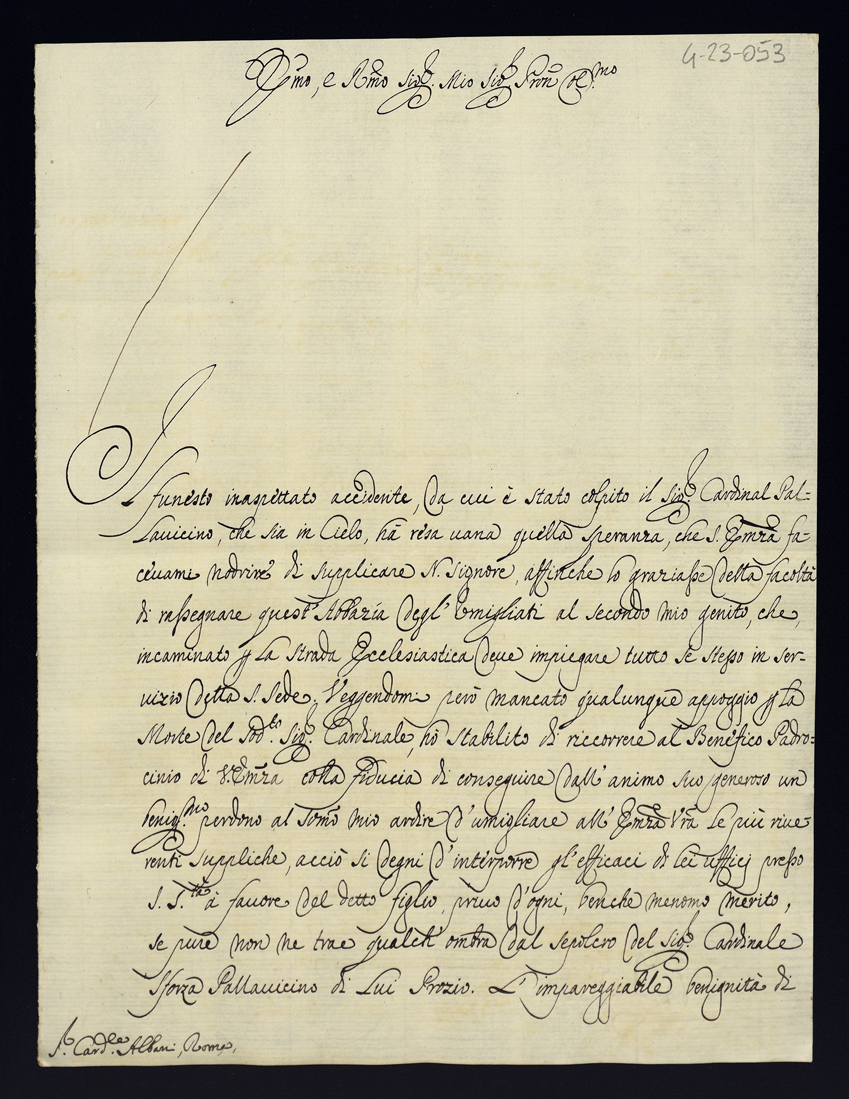 4-23-053
Em̃o, e Rm̃o Sig.r Mio Sig.r Pron̄ Col.mo
Il funesto inaspettato accidente, da cui è stato colpito il Sig.r Cardinal Pal=
lavicino, che sia in Cielo, hà resa vana quella speranza, che S. Em̃za fa=
cevami nodrire di supplicare N. Signore, affinche lo graziasse della facoltà
di rassegnare quest'Abbazía degl'Umigliati al secondo mio genito, che,
incaminato p La Strada Ecclesiastica deve impiegare tutto se stesso in ser=
vizio della S. Sede. Veggendomi però mancato qualunque appoggio p La
Morte del Sod.to Sig.r Cardinale, hò stabilito di riccorrere al Benefico Padro=
cinio di V. Em̃za colla fiducia di conseguire dall'animo suo generoso un
benig.mo perdono al Som̃o mio ardire d'umigliare all'Em̃za Vrã Le più rive=
renti suppliche, acciò si degni d'interporre gl'efficaci di Lei ufficj presso
S. S.tà à favore del detto figlio, privo d'ogni, benche menomo merito,
se pure non ne trae qualch'ombra dal sepolcro del Sig.r Cardinale
Sforza Pallavicino di Lui Prozio. L'impareggiabile benignità di
S.r Card.le Albani, Roma,